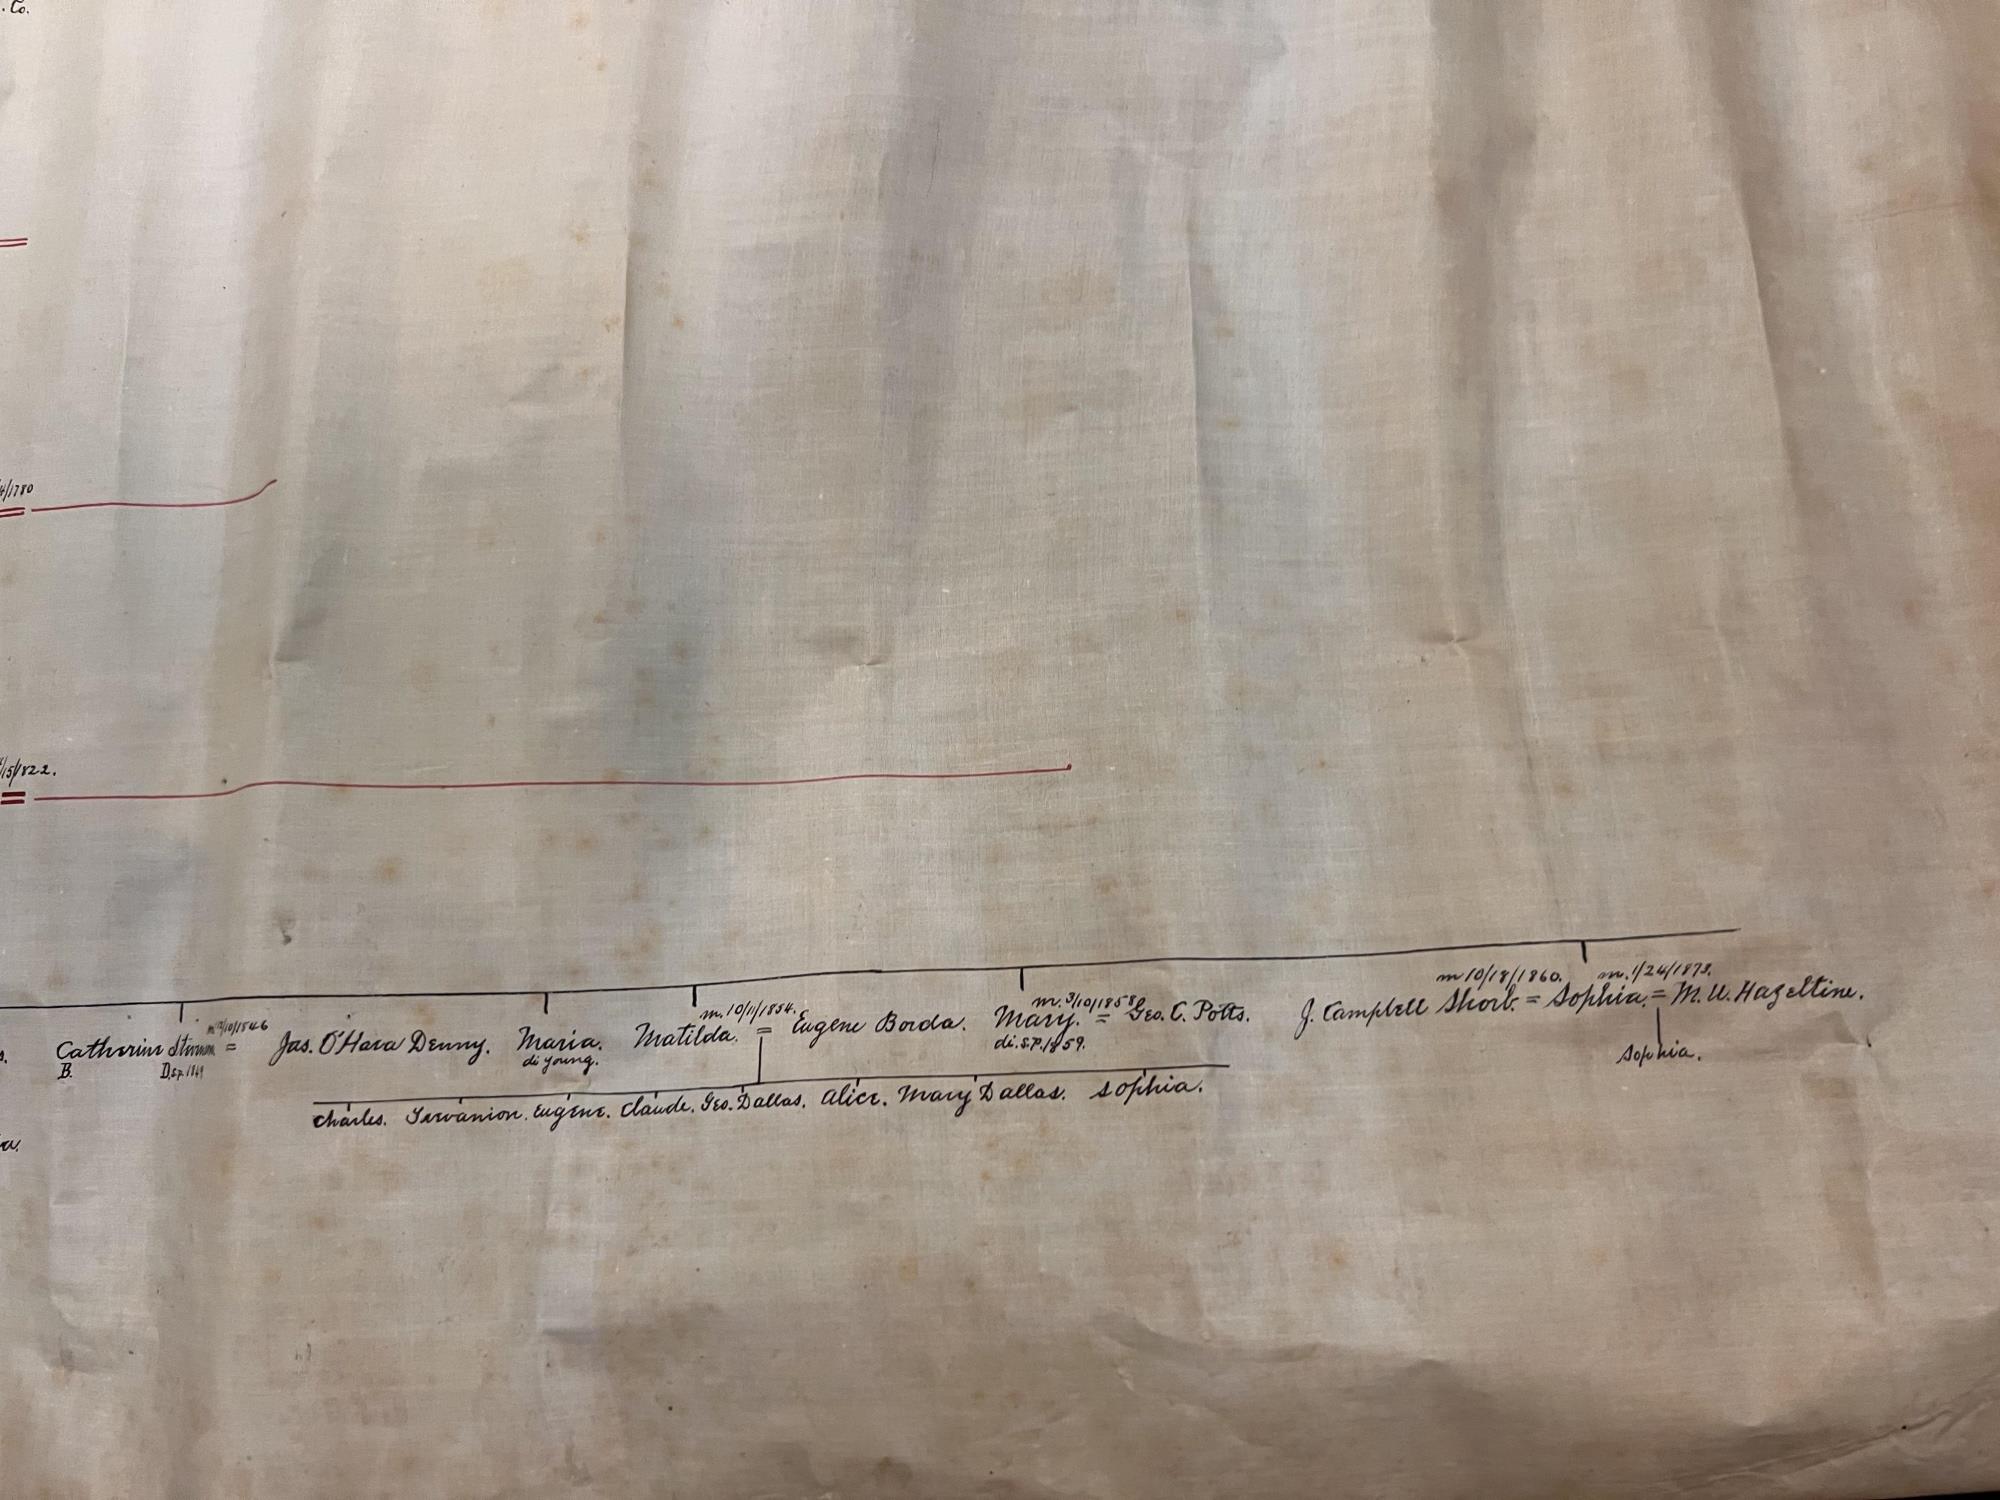 . Co.
4/1780
/15/1822.
m 10/18/1860. m. 1/24/1873.
J. Campbell Shorb = Sophia. = M. W. Hazeltine.
Sophia.
m. 3/10/1858
Mary. = Geo. C. Potts.
di. S.P. 1859.
m. 10/11/1854.
Matilda. = Eugene Borda.
Maria.
di young.
/10/1846
Catherine = Jas. O'Hara Denny.
B. D.s.p. 1849
Charles. Tervanion. Eugene. Claude. Geo. Dallas. Alice. Mary Dallas. Sophia.
a.